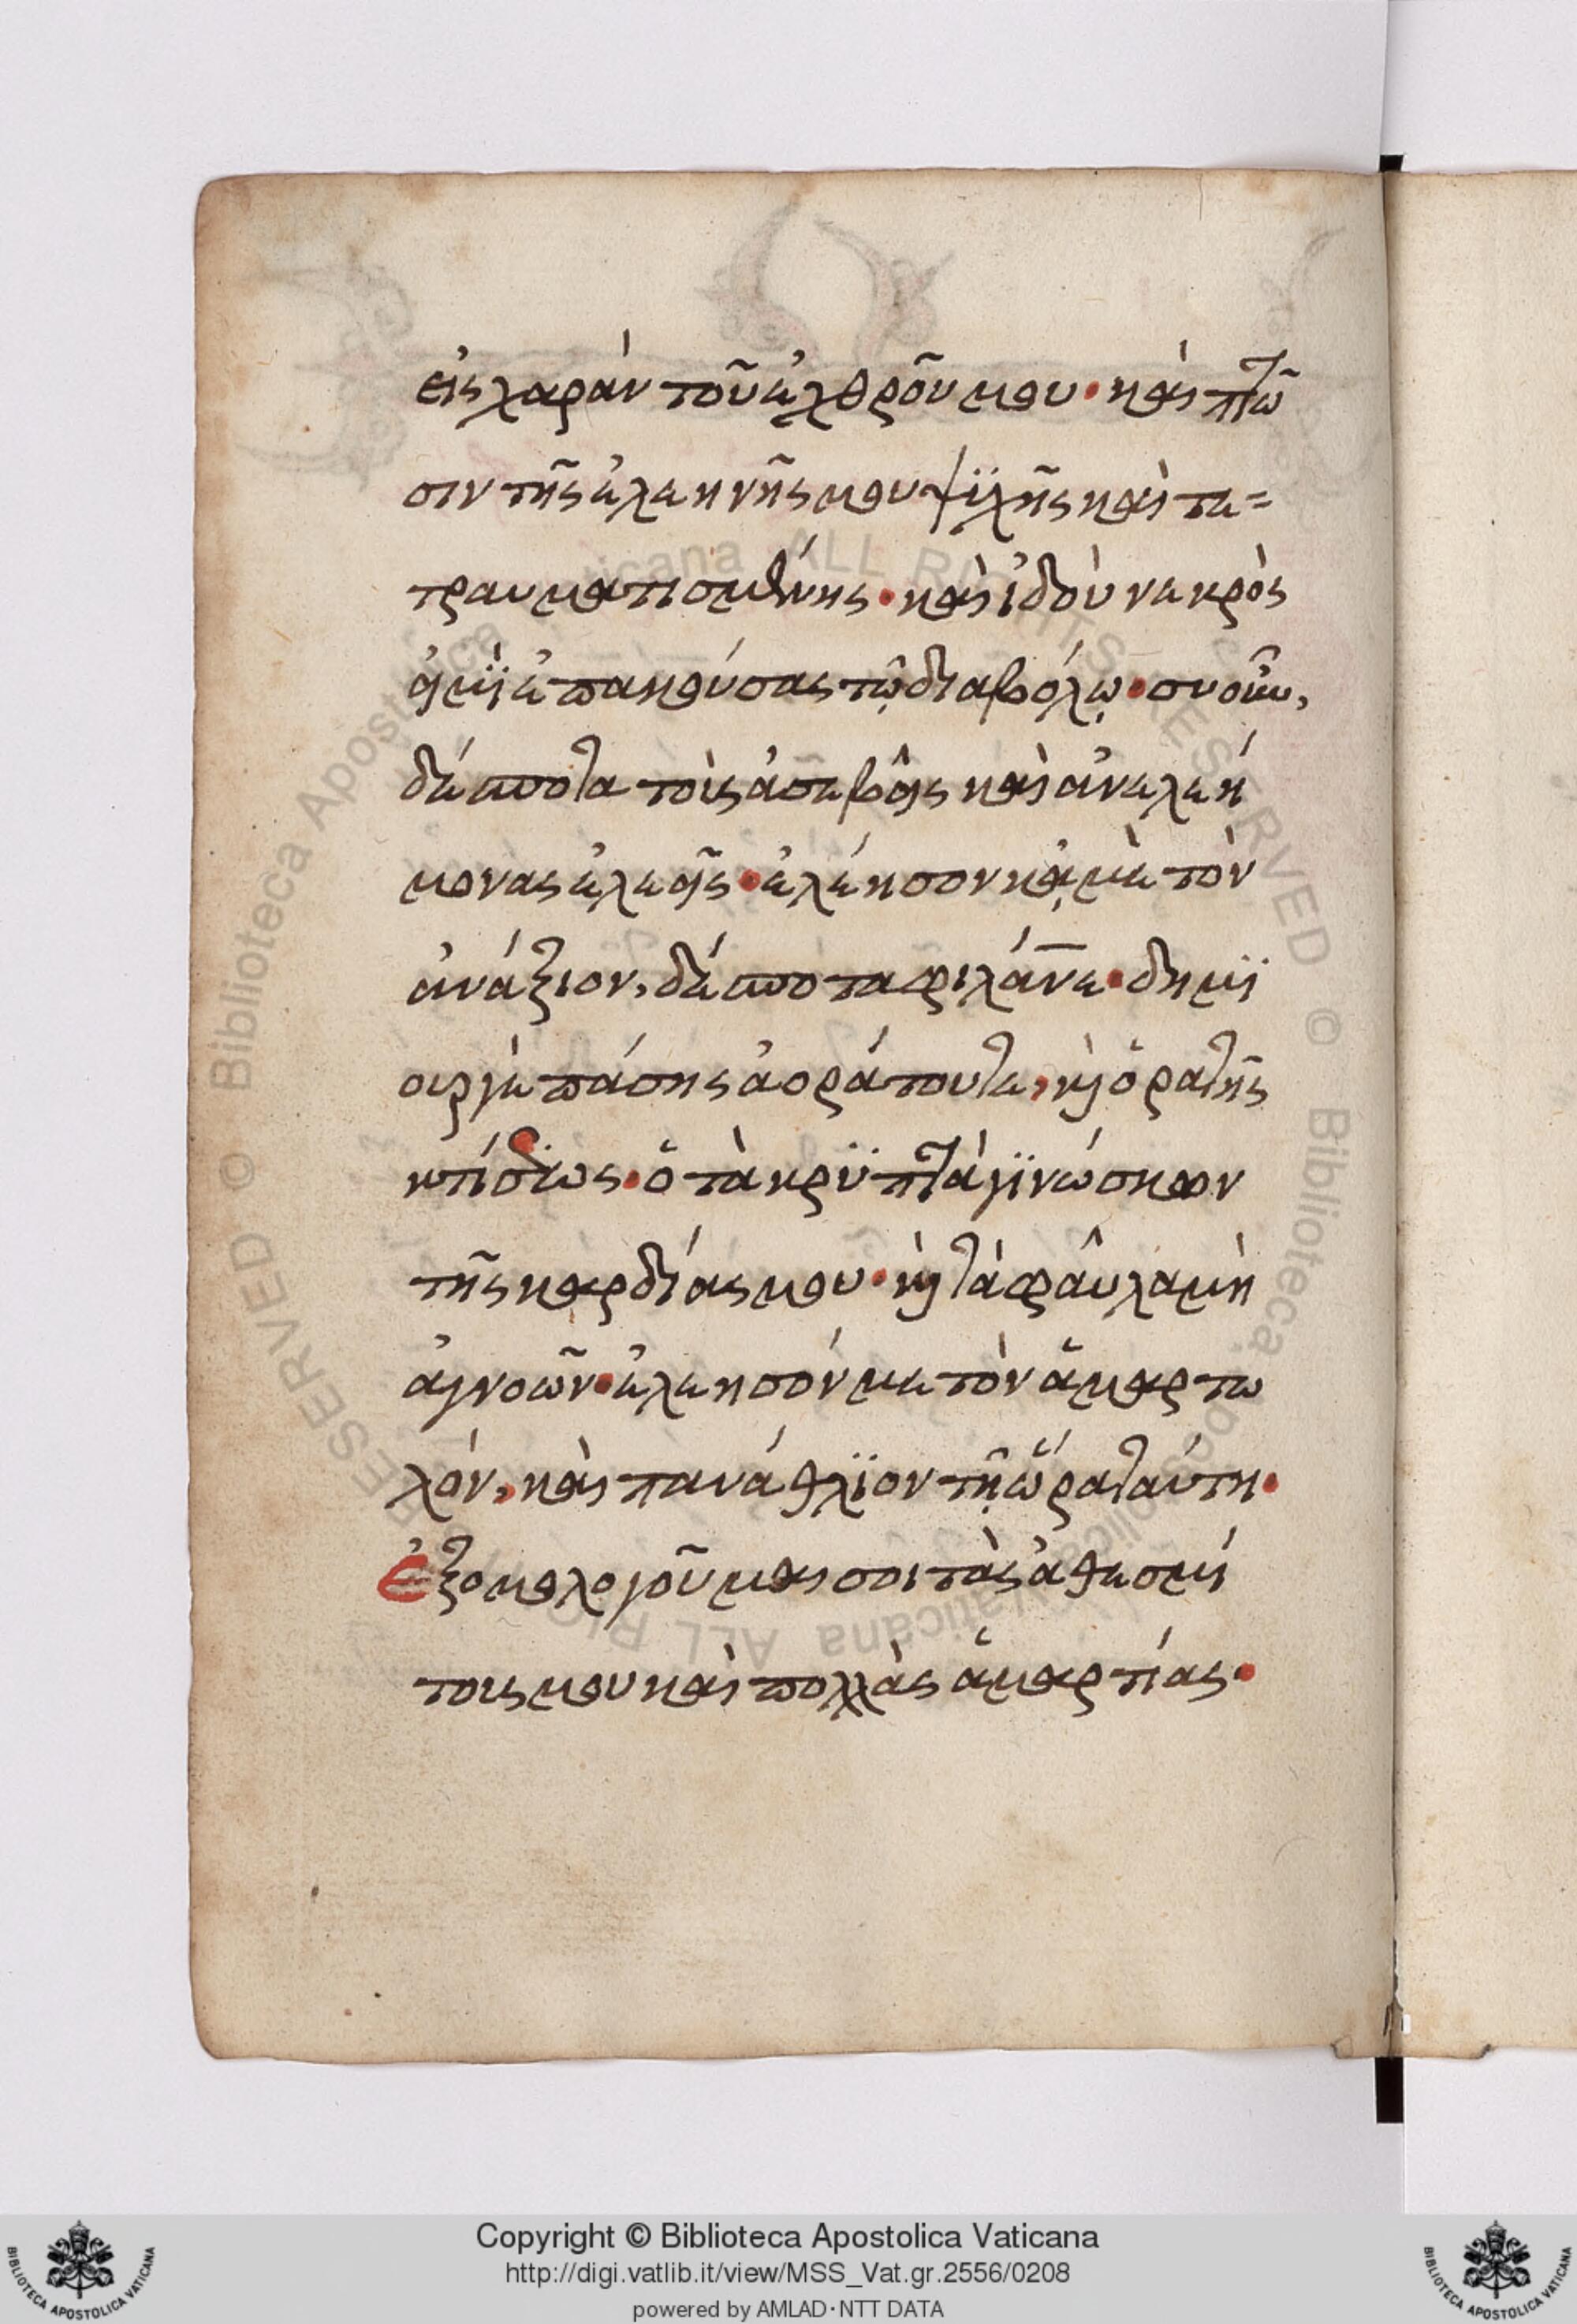 εἰς χαρὰν τοῦ ἐχθροῦ μου · καὶ πτῶ
σιν τῆς ἐλεηνῆς μου ψϊχῆς καὶ τε=
τραυματισμένης · καὶ ἰδοὺ νεκρὸς
εἰμῒ ἐπακούσας τῷ διαβόλῳ · συ οὖν,
δέσποτα τοὺς ἀσεβεῖς καὶ ἀνελεή
μονας ἐλεεῖς · ἐλέησον κᾀμὲ τὸν
ἀνάξιον, δέσποτα φιλάνε · δημϊ
ουργὲ πάσης ἀοράτου τε, κὶ ὁρατῆς
κτίσεως · ὁ τὰ κρϋπτὰ γϊνώσκων
τῆς καρδίας μου · κὶ τὰ φαῦλα μὴ
ἀγνοῶν · ἐλεησόν με τὸν ἁμαρτω
λόν, καὶ πανάθλϊον τῇ ὥρα ταύτη ·
Ἐξομολογοῦμαι σοι τὰς ἀθεσμί
τους μου καὶ πολλὰς ἁμαρτίας ·
Copyright © Biblioteca Apostolica Vaticana
http://digi.vatlib.it/view/MSS_Vat.gr.2556/0208
powered by AMLAD · NTT DATA